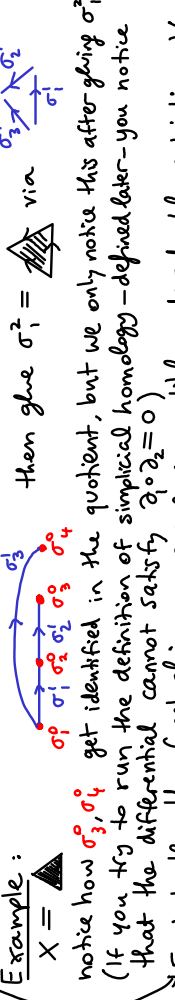 Example:
X = ▲
σ⁰₁ σ¹₁ σ⁰₂ σ¹₂ σ⁰₃ σ⁰₄ σ¹₃
then glue σ²₁ = ▲ via
σ¹₃ σ¹₂ σ¹₁
notice how σ⁰₃, σ⁰₄ get identified in the quotient, but we only notice this after gluing σ²₁
(If you try to run the definition of simplicial homology - defined later - you notice
that the differential cannot satisfy ∂₁∘∂₂ = 0)